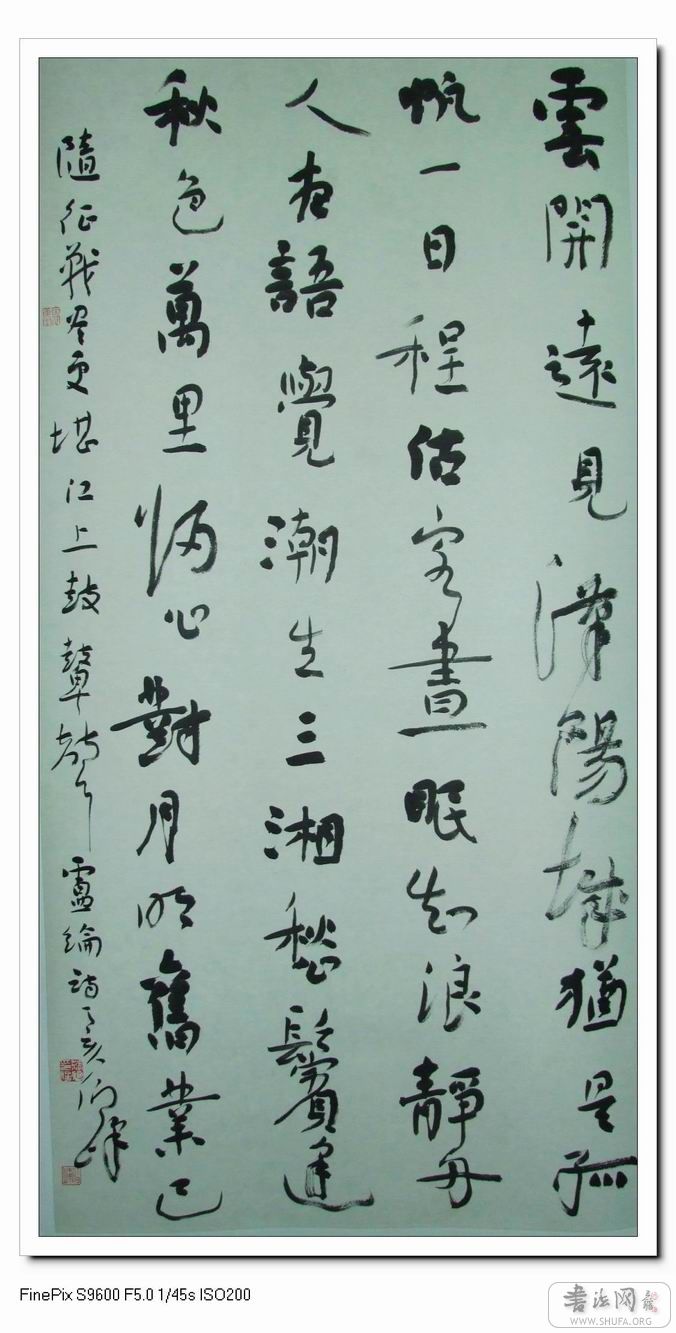 雲開遠見漢陽城猶是孤
帆一日程估客晝眠知浪靜舟
人夜語覺潮生三湘愁鬢逢
秋色萬里歸心對月明舊業已
隨征戰盡更堪江上鼓鼙聲 盧綸詩丁亥峰
FinePix S9600 F5.0 1/45s ISO200
書法网
WWW.SHUFA.ORG